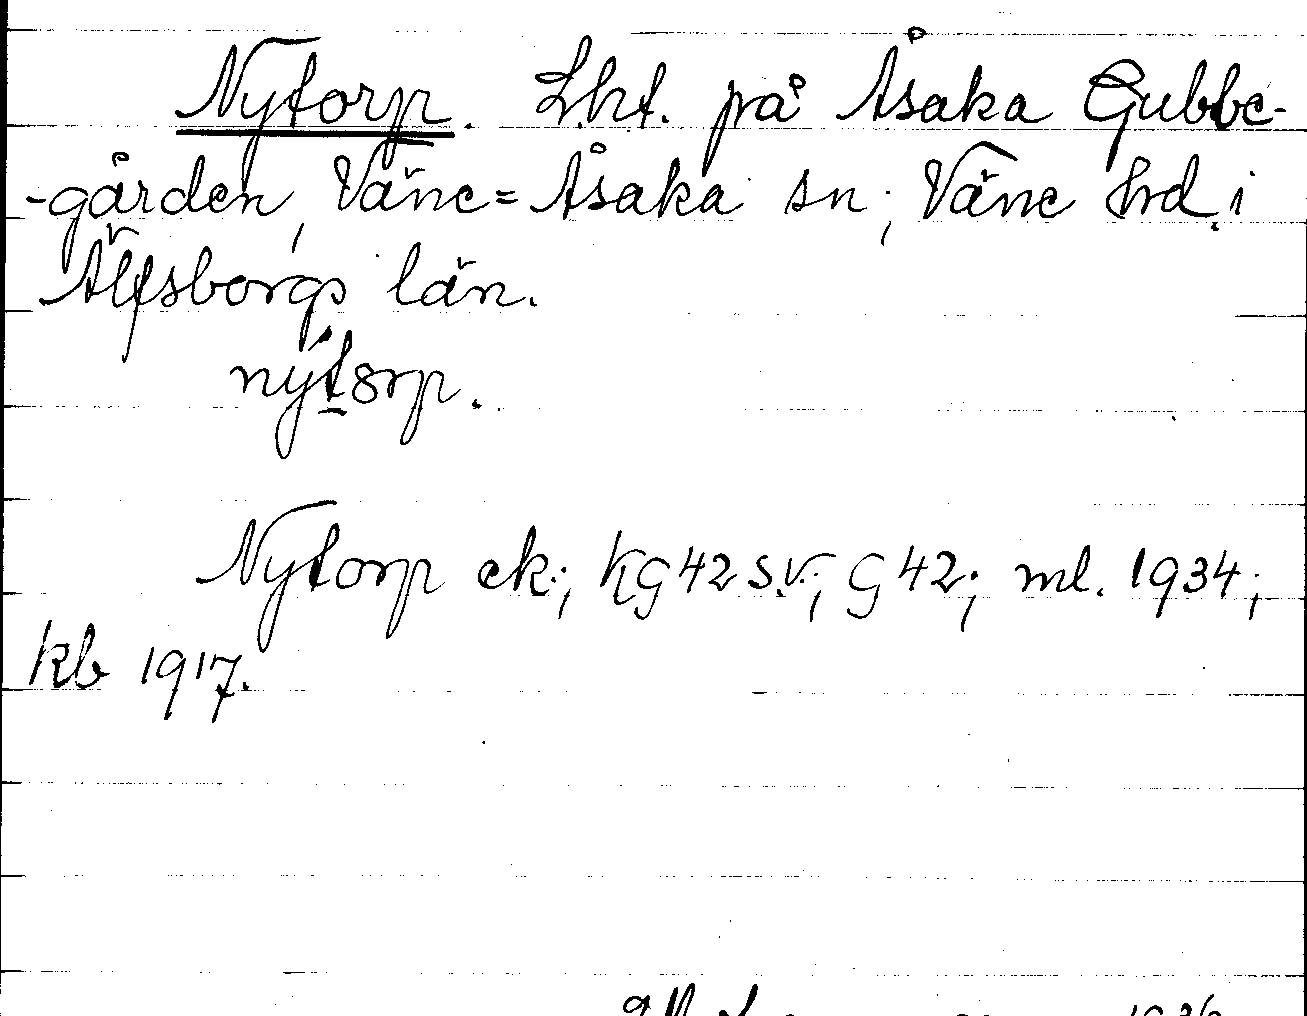 Nytorp. Lht. på Åsaka Gubbe-
-gården, Väne=Åsaka sn; Väne hrd. i
Älfsborgs län.
nýtorp.
Nytorp ek.; KG 42 s.v.; G 42; ml. 1934;
kb 1917.